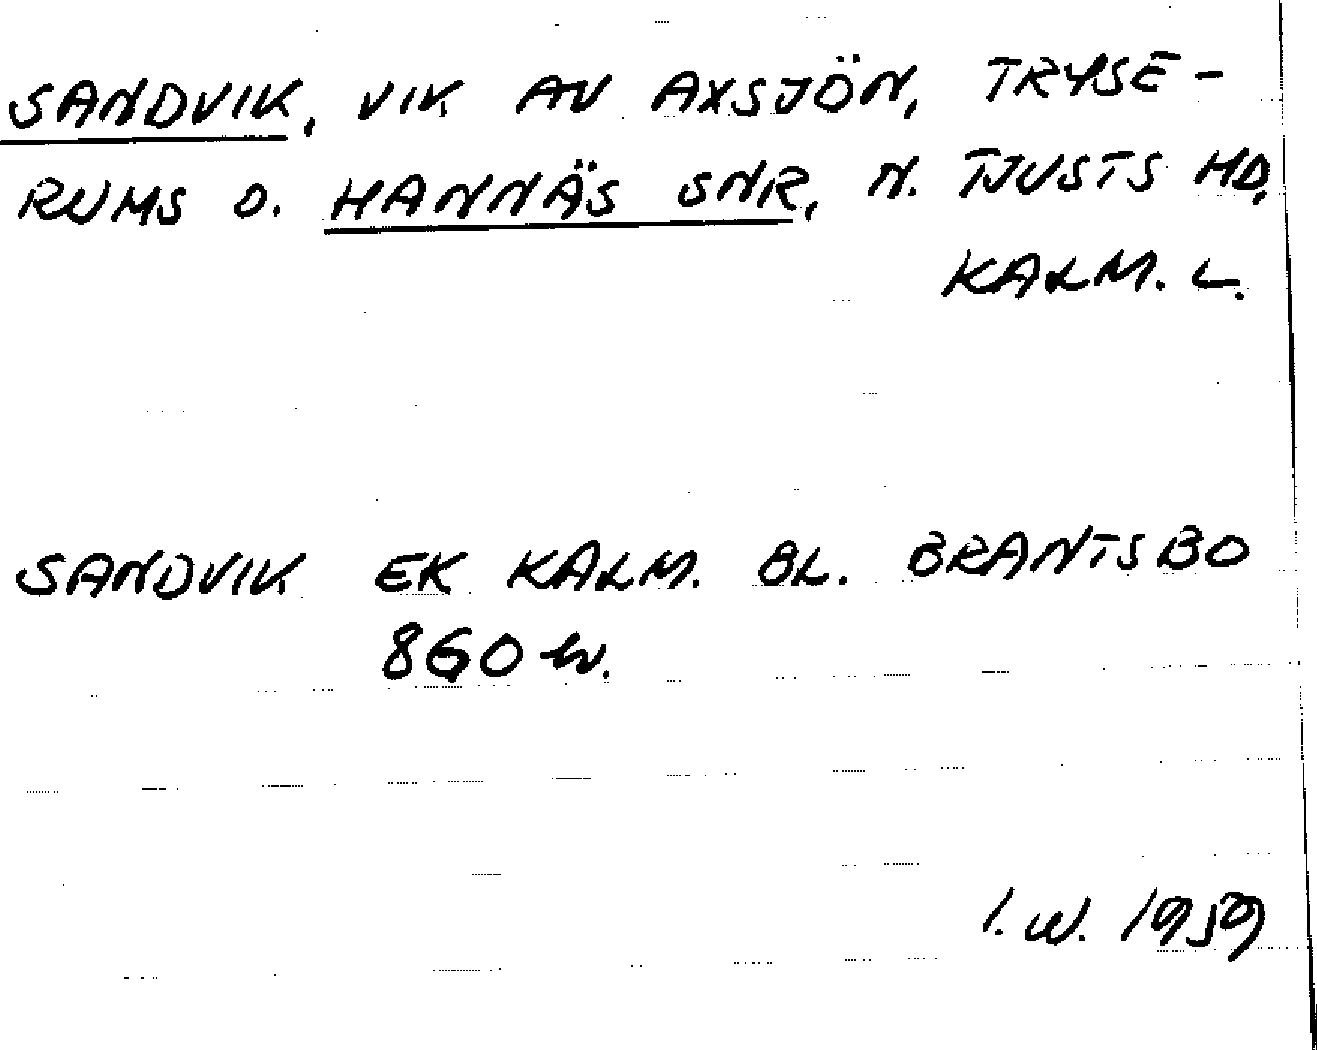 SANDVIK, VIK AV AXSJÖN, TRYSE-
RUMS O. HANNÄS SNR, N. TJUSTS HD,
KALM. L.
SANDVIK EK KALM. BL. BRANTSBO
860 tv.
I. W. 1959